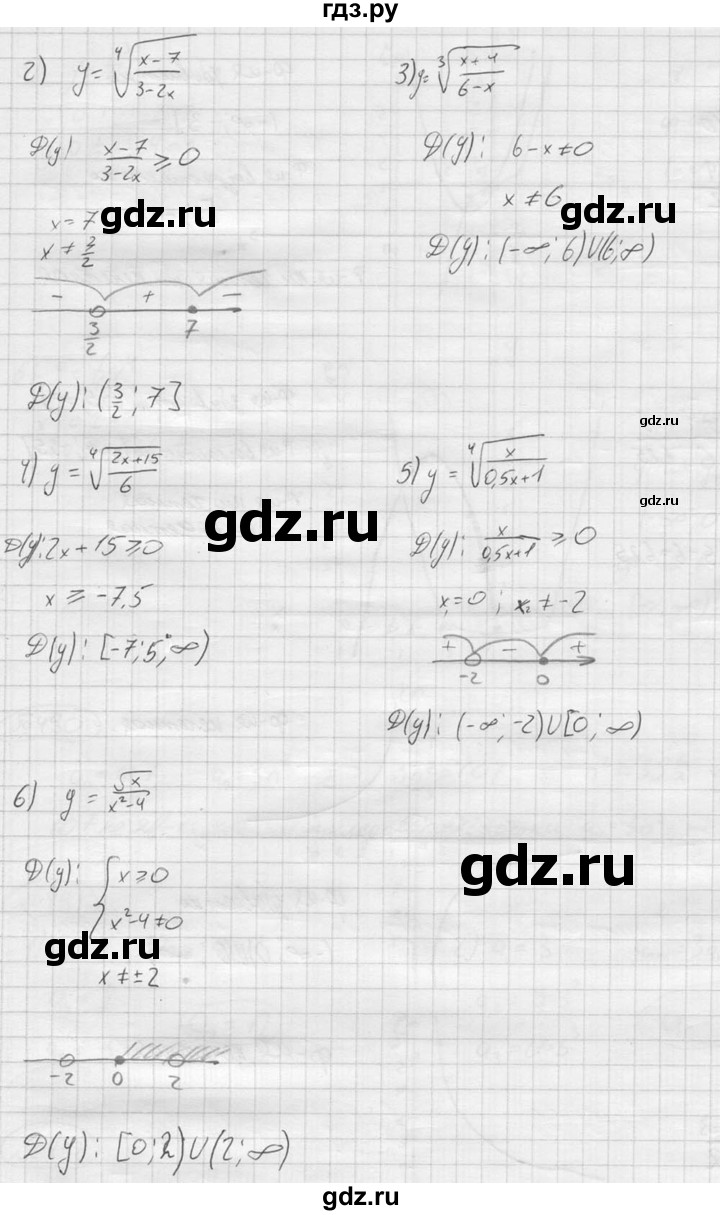 гдз.ру
2) y = ⁴√((x-7)/(3-2x))
D(y) (x-7)/(3-2x) ⩾ 0
x = 7
x ≠ 3/2
- + -
3/2 7
D(y): (3/2; 7]
3) y = ³√((x+4)/(6-x))
D(y): 6-x ≠ 0
x ≠ 6
D(y): (-∞; 6)U(6; ∞)
gdz.ru
gdz.ru
4) y = ⁴√((2x+15)/6)
D(y): 2x + 15 ⩾ 0
x ⩾ -7,5
D(y): [-7; 5; ∞)
gdz.ru
gdz.ru
gdz.ru
5) y = ⁴√(x/(0,5x+1))
D(y): x/(0,5x+1) ⩾ 0
x₁ = 0; x₂ ≠ -2
+ - +
-2 0
D(y): (-∞; -2)U[0; ∞)
6) y = √x/(x²-4)
D(y): { x ⩾ 0
x²-4 ≠ 0
x ≠ ±2
gdz.ru
gdz.ru
-2 0 2
D(y): [0; 2)U(2; ∞)
gdz.ru